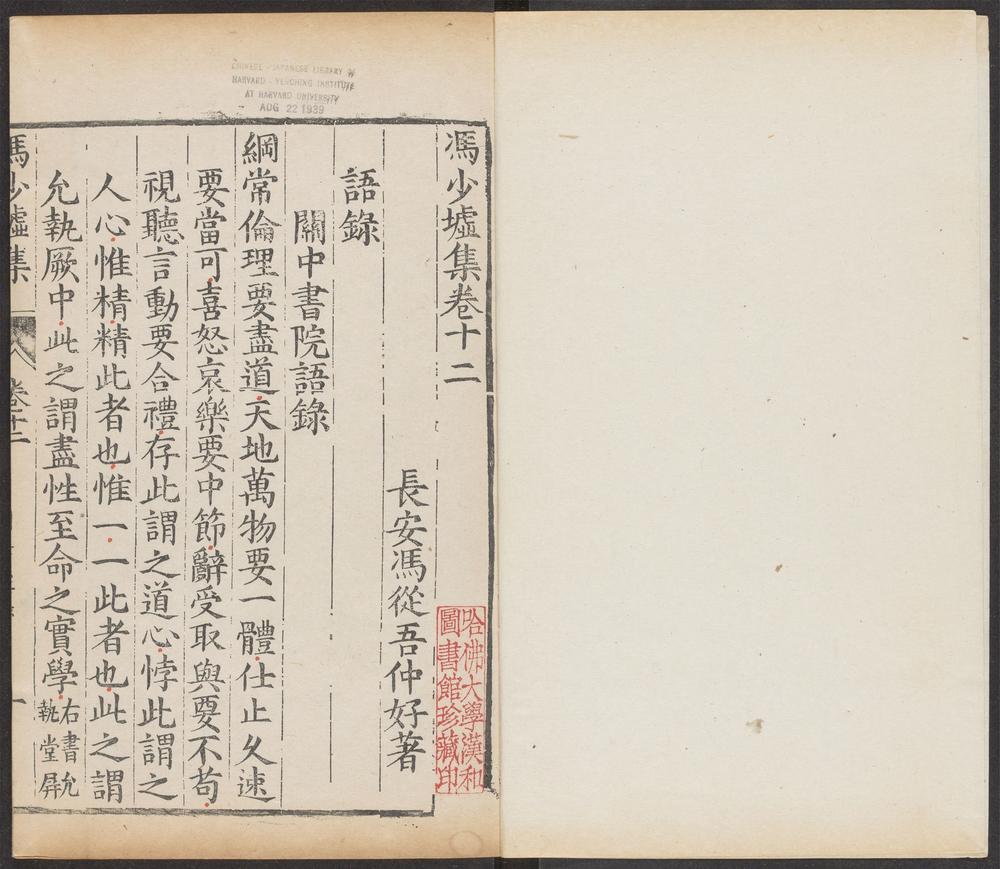 CHINESE - JAPANESE LIBRARY OF
HARVARD - YENCHING INSTITUTE
AT HARVARD UNIVERSITY
AUG 22 1939
馮少墟集卷十二
長安馮從吾仲好著
語錄
關中書院語錄
綱常倫理要盡道天地萬物要一體仕止久速
要當可喜怒哀樂要中節辭受取與要不苟
視聽言動要合禮存此謂之道心悖此謂之
人心惟精精此者也惟一一此者也此之謂
允執厥中此之謂盡性至命之實學右書允
執堂屏
馮少墟集
卷十二
一
哈佛大學漢和
圖書館珍藏印